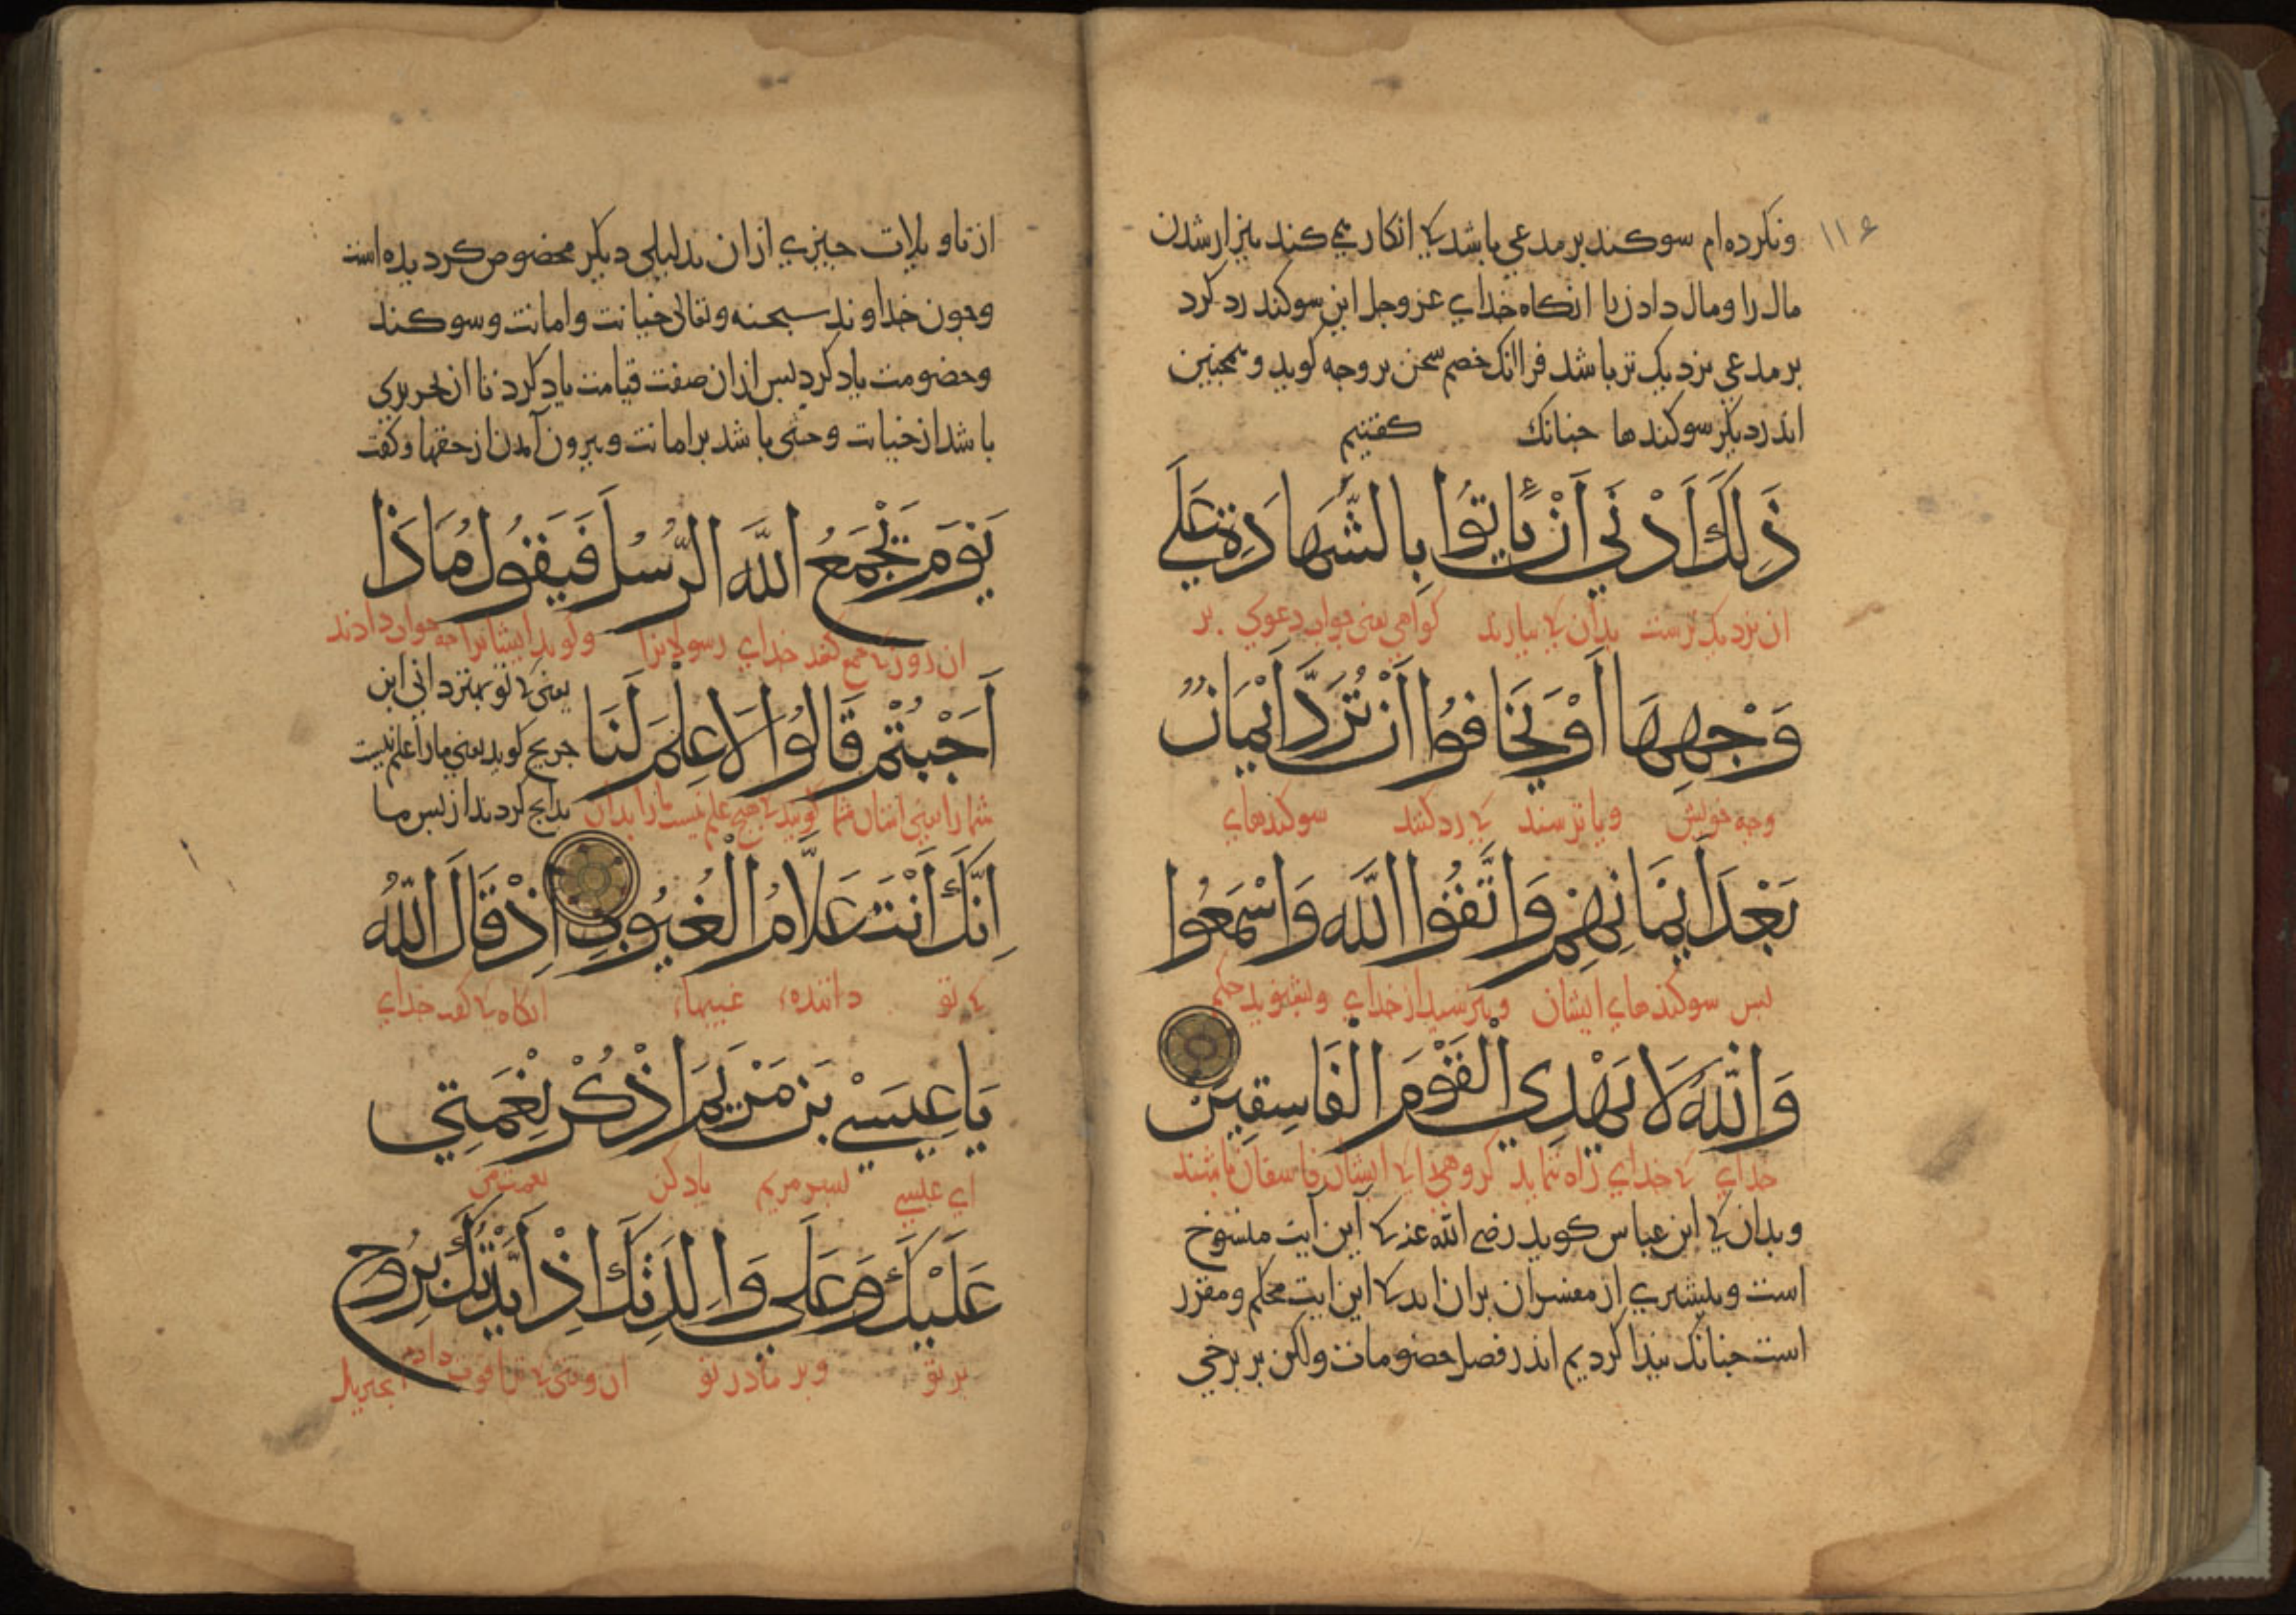 ۱۱۶
ونکرده‌ام سوکند بر مدعی باشد کی انکار می کند بیزار شدن
مال را ومال دادن را انکاه خدای عز وجل این سوکند رد کرد
بر مدعی نزدیک تر باشد فرا انک خصم سخن بر وجه کوید و همچنین
اندر دیکر سوکندها چنانک کفتیم
ذَلِكَ أَدْنَي أَنْ يَأْتُوا بِالشَّهَادَةِ عَلَي
ان نزدیک ترست بدان کی بیارند کواهی یعنی جواب دعوی بر
وَجْهِهَا أَوْ يَخَافُوا أَنْ تُرَدَّ أَيْمَانٌ
وجه خویش ویا ترسند کی رد کنند سوکندهای
بَعْدَ أَيْمَانِهِمْ وَاتَّقُوا اللَّهَ وَاسْمَعُوا
بس سوکندهای ایشان وبترسید از خدای وبشنوید حکم
وَاللَّهُ لَا يَهْدِي الْقَوْمَ الْفَاسِقِينَ
خدای کی خدای راه ننماید کروهی را کی ایشان فاسقان باشند
وبدان کی ابن عباس کوید رضی الله عنه کی این آیت منسوخ
است وبیشتری از مفسران بران اند کی این ایت محکم ومقرر
است چنانک بیدا کردیم اندر فصل خصومات ولکن بر برخی
از تاویلات چیزی ازان بدلیلی دیکر مخصوص کردیده است
وچون خداوند سبحنه وتعالی خیانت وامانت وسوکند
وخصومت یاد کرد بس ازان صفت قیامت یاد کرد تا از تحریزی
باشد از خیانت وحثی باشد بر امانت وبیرون آمدن از حقها وکفت
يَوْمَ يَجْمَعُ اللَّهُ الرُّسُلَ فَيَقُولُ مَاذَا
ان روز کی جمع کند خدای رسولانرا وکوید ایشانرا چه جواب دادند
یعنی کی تو بهتر دانی ابن
أُجِبْتُمْ قَالُوا لَا عِلْمَ لَنَا جریج کوید یعنی مارا علم نیست
شمارا یعنی امتان شما کویند کی هیچ علم نیست مارا بدان بدانچ کردند از بس ما
إِنَّكَ أَنْتَ عَلَّامُ الْغُيُوبِ إِذْ قَالَ اللَّهُ
کی تو داننده غیبها انکاه کی کفت خدای
يَا عِيسَي بْنَ مَرْيَمَ اذْكُرْ نِعْمَتِي
ای عیسی بسر مریم یاد کن نعمت من
عَلَيْكَ وَعَلَي وَالِدَتِكَ إِذْ أَيَّدْتُكَ بِرُوحِ
بر تو وبر مادر تو ان وقتی کی ترا قوت دادم بجبریل